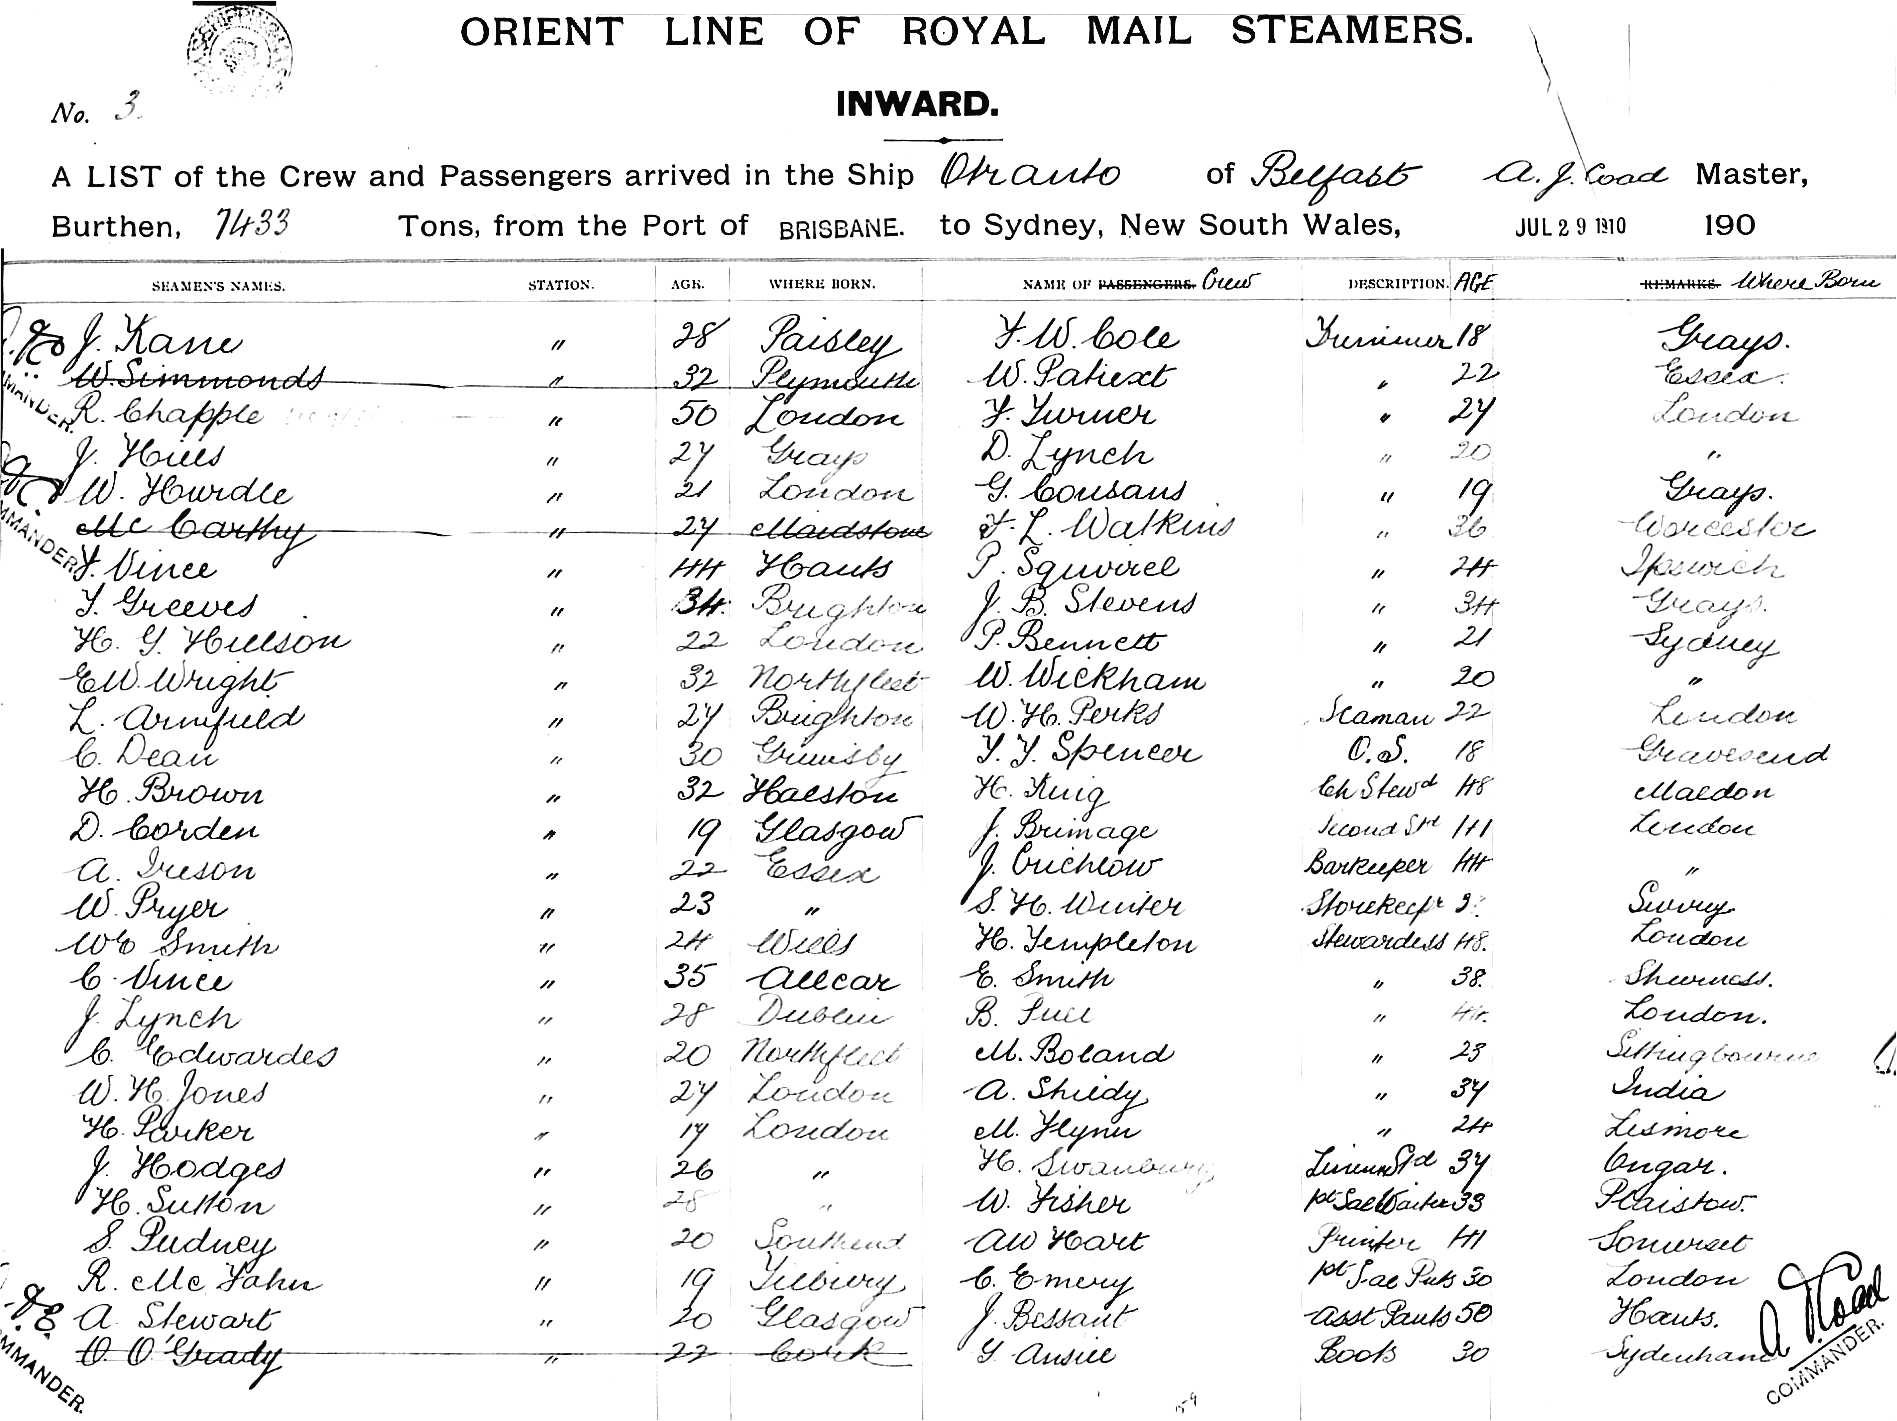 ORIENT LINE OF ROYAL MAIL STEAMERS.
No. 3.
INWARD.
A LIST of the Crew and Passengers arrived in the Ship Otranto of Belfast A. J. Coad Master,
Burthen, 7433 Tons, from the Port of BRISBANE. to Sydney, New South Wales, JUL 29 1910 190
SEAMEN'S NAMES. STATION. AGE. WHERE BORN. NAME OF PASSENGERS. Crew DESCRIPTION. AGE REMARKS. Where Born
J. Kane " 28 Paisley F. W. Cole Trimmer 18 Grays.
W. Simmonds " 32 Plymouth W. Patient " 22 Essex.
R. Chapple " 50 London F. Turner " 27 London
J. Hills " 27 Grays D. Lynch " 20 "
W. Hurdle " 21 London G. Cousans " 19 Grays.
Mc Carthy " 27 Maidstone F. L. Watkins " 36 Worcester
F. Vince " 44 Hants P. Squirrel " 24 Ipswich
T. Greeves " 34 Brighton J. B. Stevens " 34 Grays.
H. G. Hillson " 22 London P. Bennett " 21 Sydney
E W. Wright " 32 Northfleet W. Wickham " 20 "
L. Armfield " 27 Brighton W. H. Perks Seaman 22 London
C. Dean " 30 Grimsby T. Spencer O.S. 18 Gravesend
H. Brown " 32 Halston H. King Ch Stewd 48 Maldon
D. Corden " 19 Glasgow J. Brimage Second Std 41 London
A. Ireson " 22 Essex J. Crichlow Barkeeper 44 "
W. Pryer " 23 " S. H. Winter Storekeepr Surrey
Smith " 24 Wilts H. Templeton Stewardess 48. London
C. Vince " 35 Allcar E. Smith " 38. Sheerness.
J. Lynch " 28 Dublin B. Full " 44. London.
C. Edwardes " 20 Northfleet M. Boland " 23 Sittingbourne
W. H. Jones " 27 London A. Shiedy " 37 India
H. Parker " 17 London M. Flynn " 24 Lismore
J. Hodges " 26 " H. Swanbury Linen Std 37 Ongar.
H. Sutton " 28 " W. Fisher 1st Sal Waiter 33 Plaistow.
S. Pudney " 20 Southend AW Hart Printer 41 Somerset
R. Mc Fahn " 19 Tilbury C. Emery 1st Sal Pnts 30 London
A. Stewart " 20 Glasgow J. Bessant Asst Pants 50 Hants.
O. O'Grady " 22 Cork G. Ansill Boots 30 Sydenham
A. J. Coad
COMMANDER.